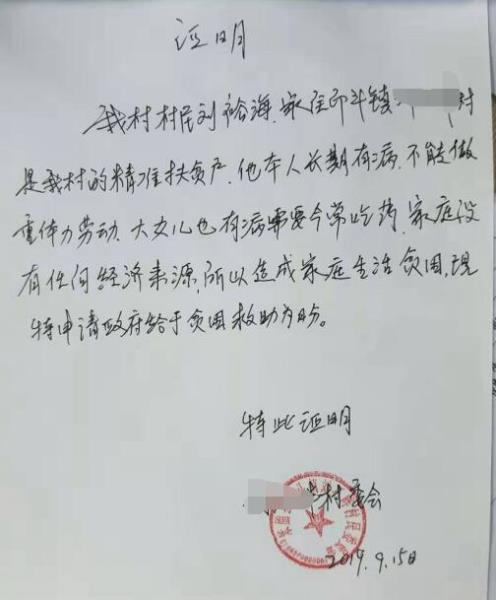 证明
我村村民刘裕海,家住印斗镇村
是我村的精准扶贫户,他本人长期有病,不能做
重体力劳动,大女儿也有病需要今常吃药,家庭没
有任何经济来源,所以造成家庭生活贫困,现
特申请政府给于贫困救助为盼。
特此证明
村委会
2019.9.15日